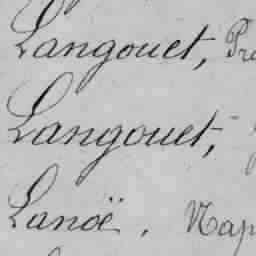 Langouet, Pr
Langouet,
Lanoë. Nap